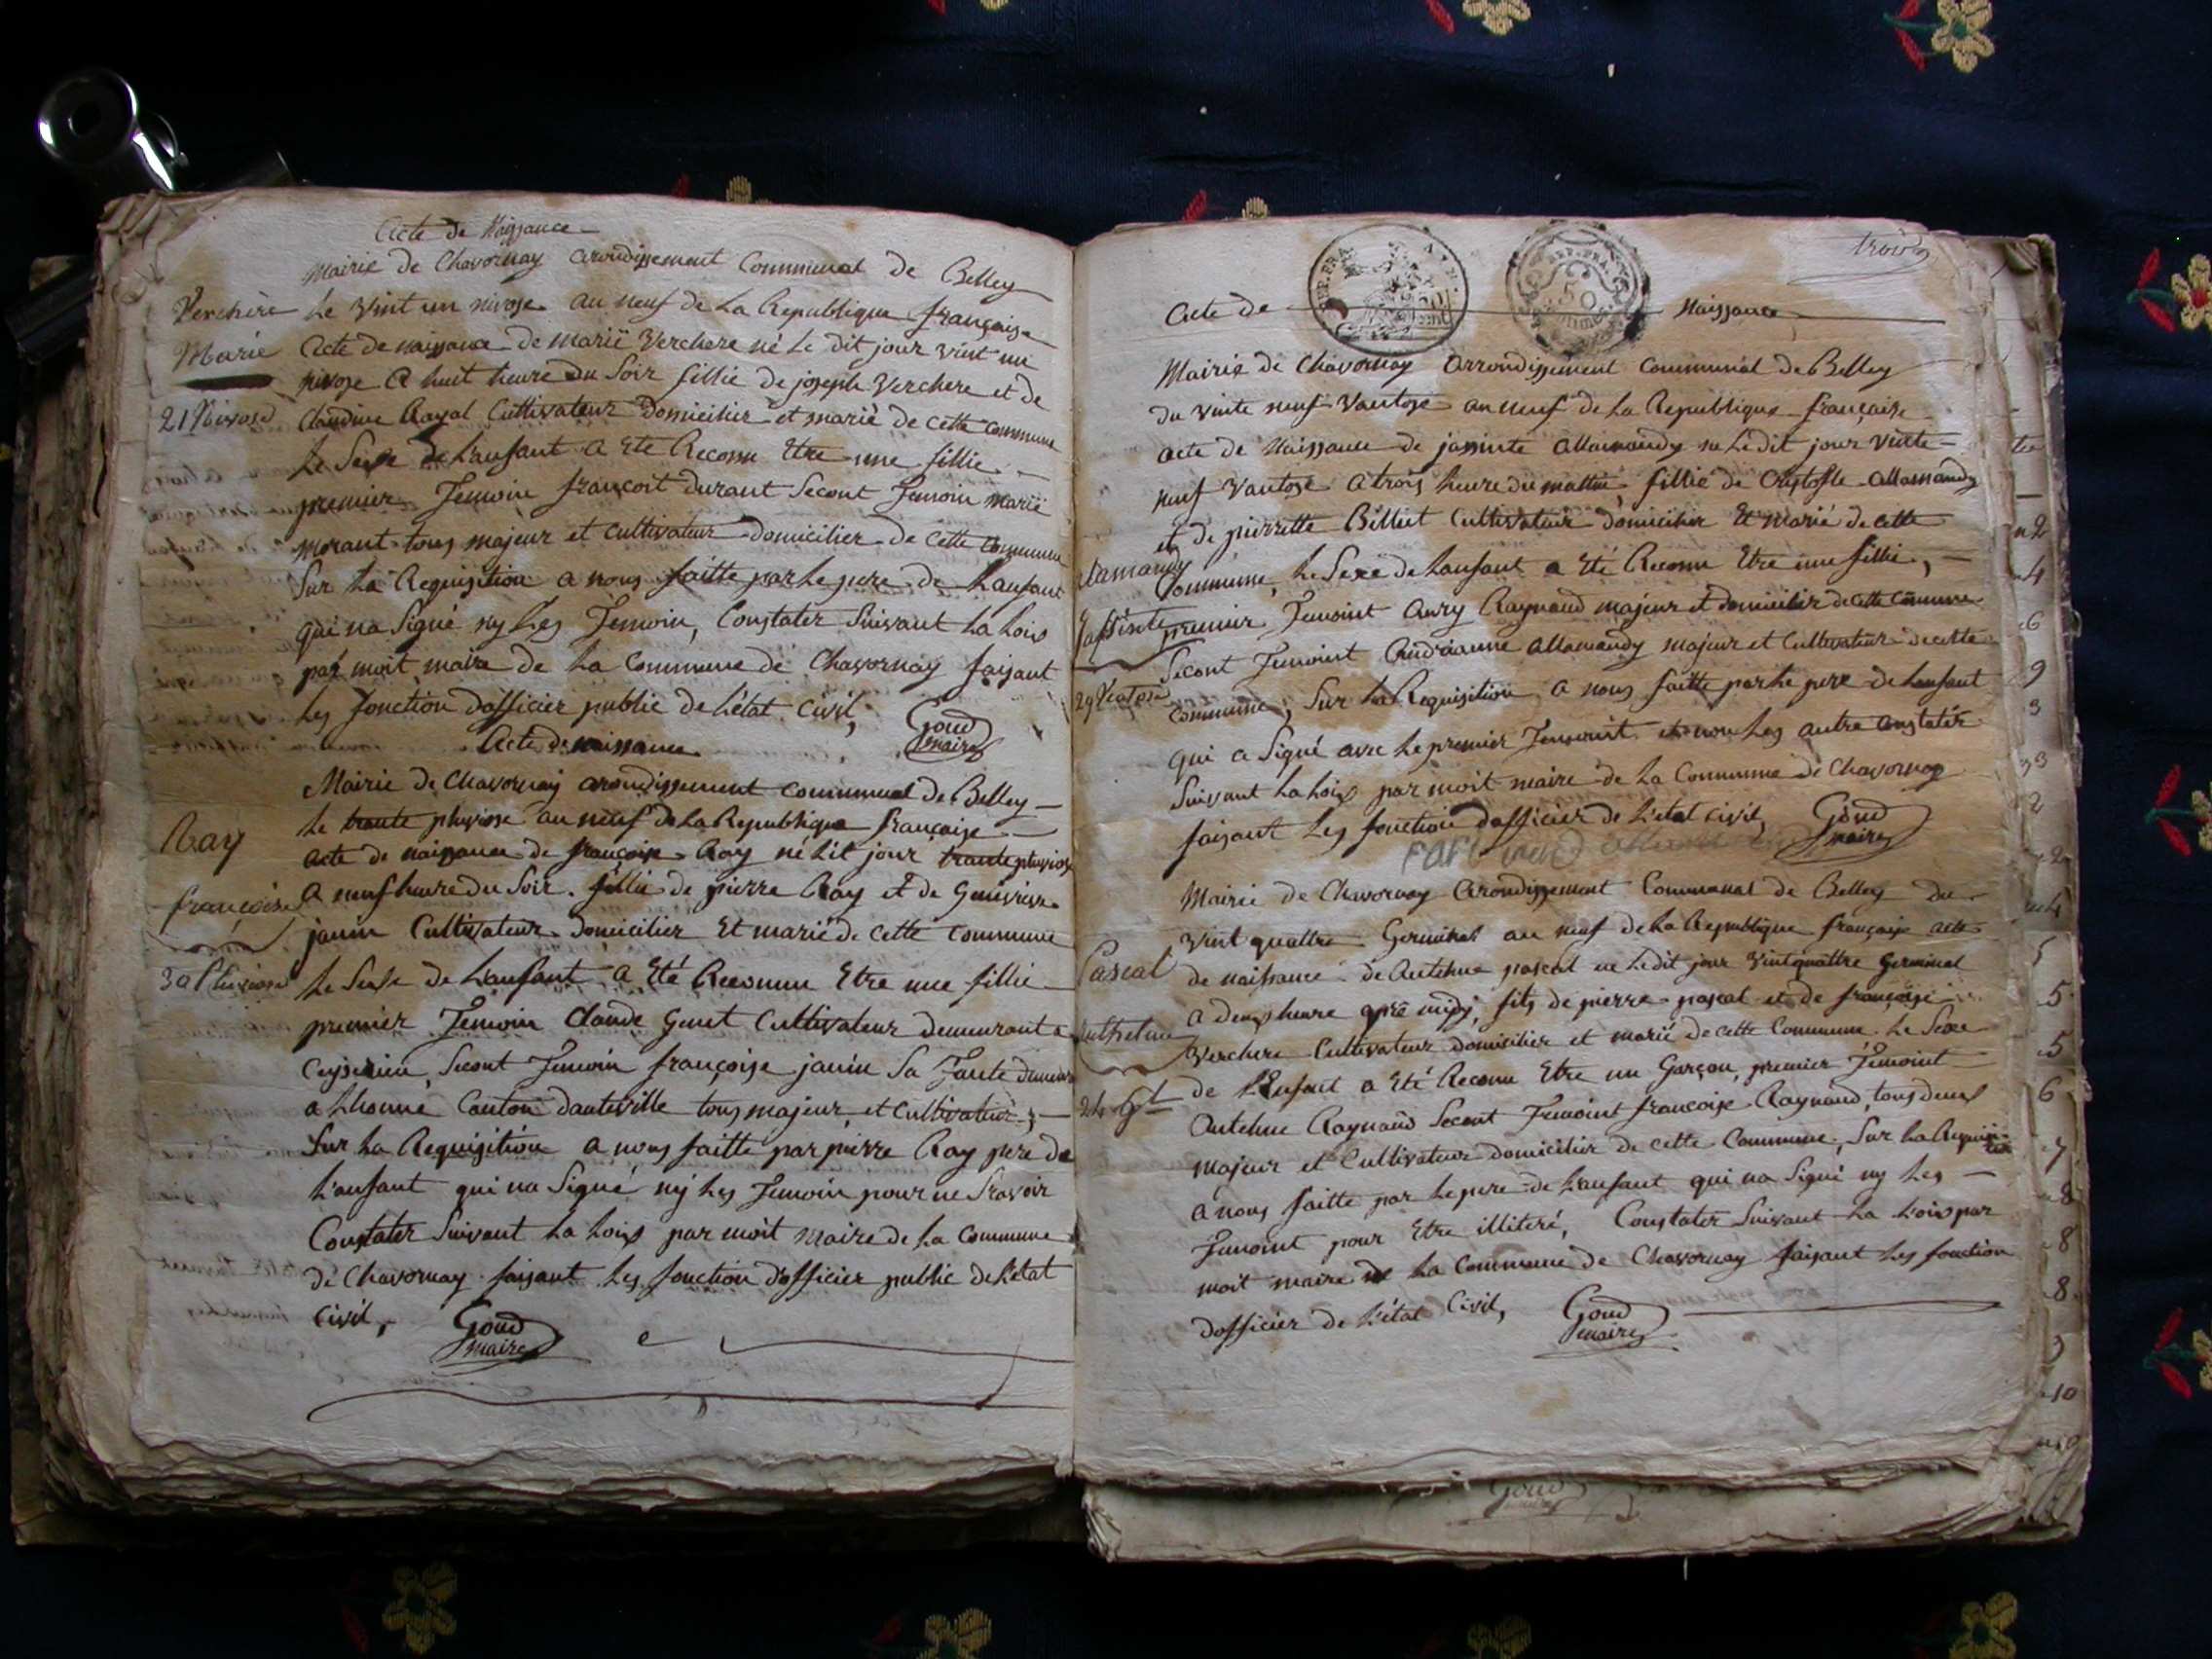 Acte de Naissance
Mairie de Chavornay arondissement Communal de Belley
Verchère
Marie
21 Nivose
Le vint un nivose an neuf de La Republique française
Acte de naissance de mariï Verchere né Le dit jour vint un
nivose a huit heure du Soir fillie de joseph Verchere et de
Claudine Rayal Cultivateur domicilier et marié de cette commune
Le Sexe de L'anfant a Eté Reconu Etre une fillie
premier Temoin françoit durant Secont Temoin mariï
morant tous majeur et cultivateur domicilier de cette commune
Sur La Requisition a nous faitte par Le pere de Lanfant
qui na Signé ny Les Temoin, Constater Suivant La Loix
par moit maire de La Commune de Chavornay faisant
Les fonction dofficier public de L'état Civil,
Goud
maire
Acte de naissance
Mairie de Chavornay arondissement communal de Belley
Ray
françoise
30 Pluviose
Le trante pluviose an neuf de La Republique française
acte de naissance de françoise Ray né Lit jour trante pluviose
a neuf heure du Soir. fillie de pierre Ray et de Genivieve
janin Cultivateur domicilier Et marié de cette commune
Le Sexe de L'anfant a Eté Reconnu Etre une fillie
premier Temoin Claude Genet Cultivateur demeurant a
Secont Temoin françoise janin Sa Tante
a Lhonne Canton dauteville tous majeur et Cultivateur,
Sur La Requisition a nous faitte par pierre Ray pere de
L'anfant qui na Signé ny Les Temoin pour ne Sravoir
Constater Suivant La Loix par moit Maire de La Commune
de Chavornay faisant Les fonction d'officier public de L'état
Civil,
Goud
maire
trois
REP. FRA.
REP. FRA.
50
Acte de Naissance
Mairie de Chavornay Arrondissement Communal de Belley
du vinte neuf Vantose an neuf de La Republique française
acte de Naissance de jassinte allamandy né Le dit jour vinte
neuf Vantose a trois heure du mattin, fillie de Cristofle allamandy
et de pierrette Billiet Cultivateur domicilier Et marié de cette
lamandy
Jassinte
29 Vantose
Commune, Le Sexe de Lanfant a Eté Reconu Etre une fillie,
premier Temoint Anry Raynaud majeur et domicilier de cette commune
Secont Temoint Andrianne allamandy majeur et Cultivateur de cette
commune, Sur La Requisition a nous faitte par Le pere de Lanfant
qui a Signé avec Le premier Temoint et non Les autre Constater
Suivant La Loix par moit maire de La Commune de Chavornay
faisant Les fonction dofficier de L'etat Civil,
Goud
maire
Mairie de Chavornay Arondissement Communal de Belley Du
Pascal
Anthelme
24 Gal
vint quattre Germinal an neuf de La Republique française acte
de naissance de Antelme pascal né Ledit jour vint quattre Germinal
a deux heure apre midy, fils de pierre pascal et de françoise
Verchere Cultivateur domicilier et marié de cette Commune. Le Sexe
de L'Enfant a Eté Reconu Etre un Garçon, premier Temoint
Antelme Raynaud Secont Temoint françoise Raynaud, tous deux
majeur et Cultivateur domicilier de cette Commune, Sur La Requisition
a nous faitte par Le pere de L'anfant qui na Signé ny Les
Temoint pour Etre illiteré, Constater Suivant La Loix par
moit maire de La Commune de Chavornay faisant Les fonction
dofficier de L'état Civil,
Goud
maire
Goud